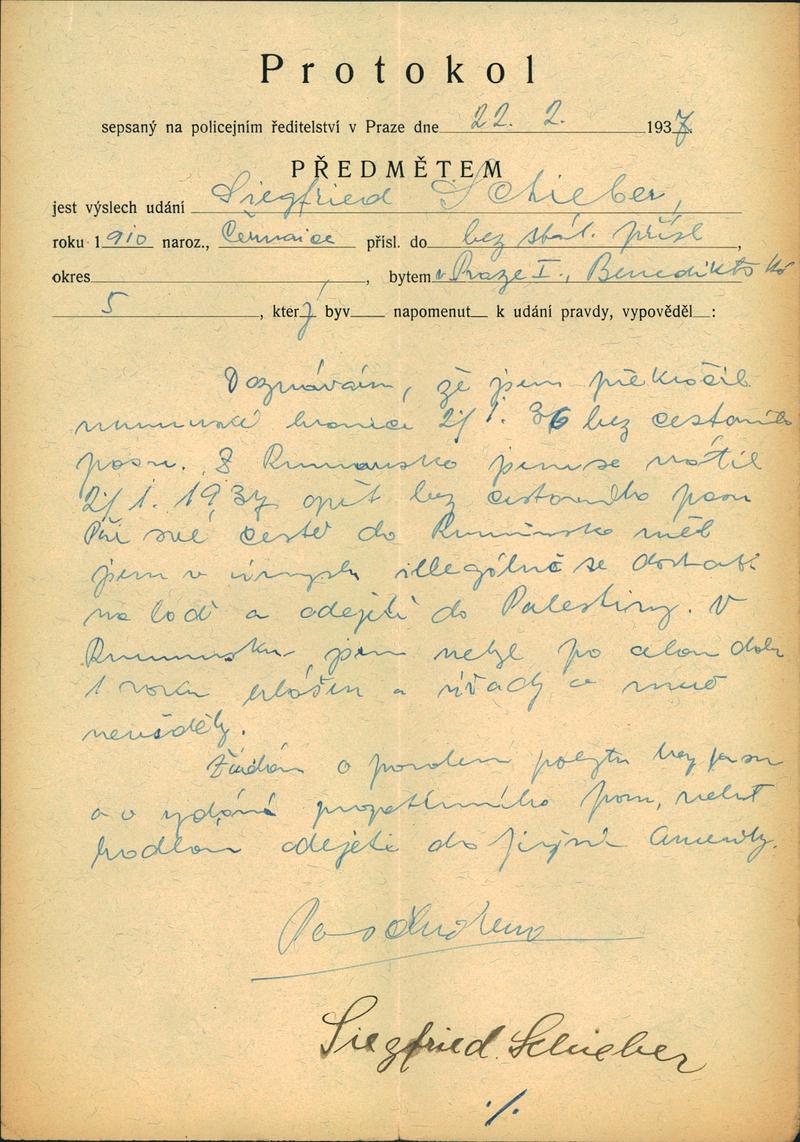 Protokol
sepsaný na policejním ředitelství v Praze dne 22. 2. 1937
PŘEDMĚTEM
jest výslech udání Siegfried Schieber,
roku 1910 naroz., Černovice přísl. do bez stál. přísl,
okres , bytem v Praze I., Benediktská
5 , který byv napomenut k udání pravdy, vypověděl :
Doznávám, že jsem překročil
rumunské hranice 2/1. 36 bez cestovního
pasu. Z Rumunska jsem se vrátil
2/1. 1937 opět bez cestovního pasu
Při své cestě do Rumunska měl
jsem v úmyslu illegálně se dostati
na loď a odejeti do Palestiny. V
Rumunsku jsem nebyl po celou dobu
1 roku hlášen a úřady o mně
nevěděly.
Žádám o povolení pobytu
a o vydání pasu, neboť
hodlám odejeti do jižní Ameriky.
Siegfried Schieber
./.